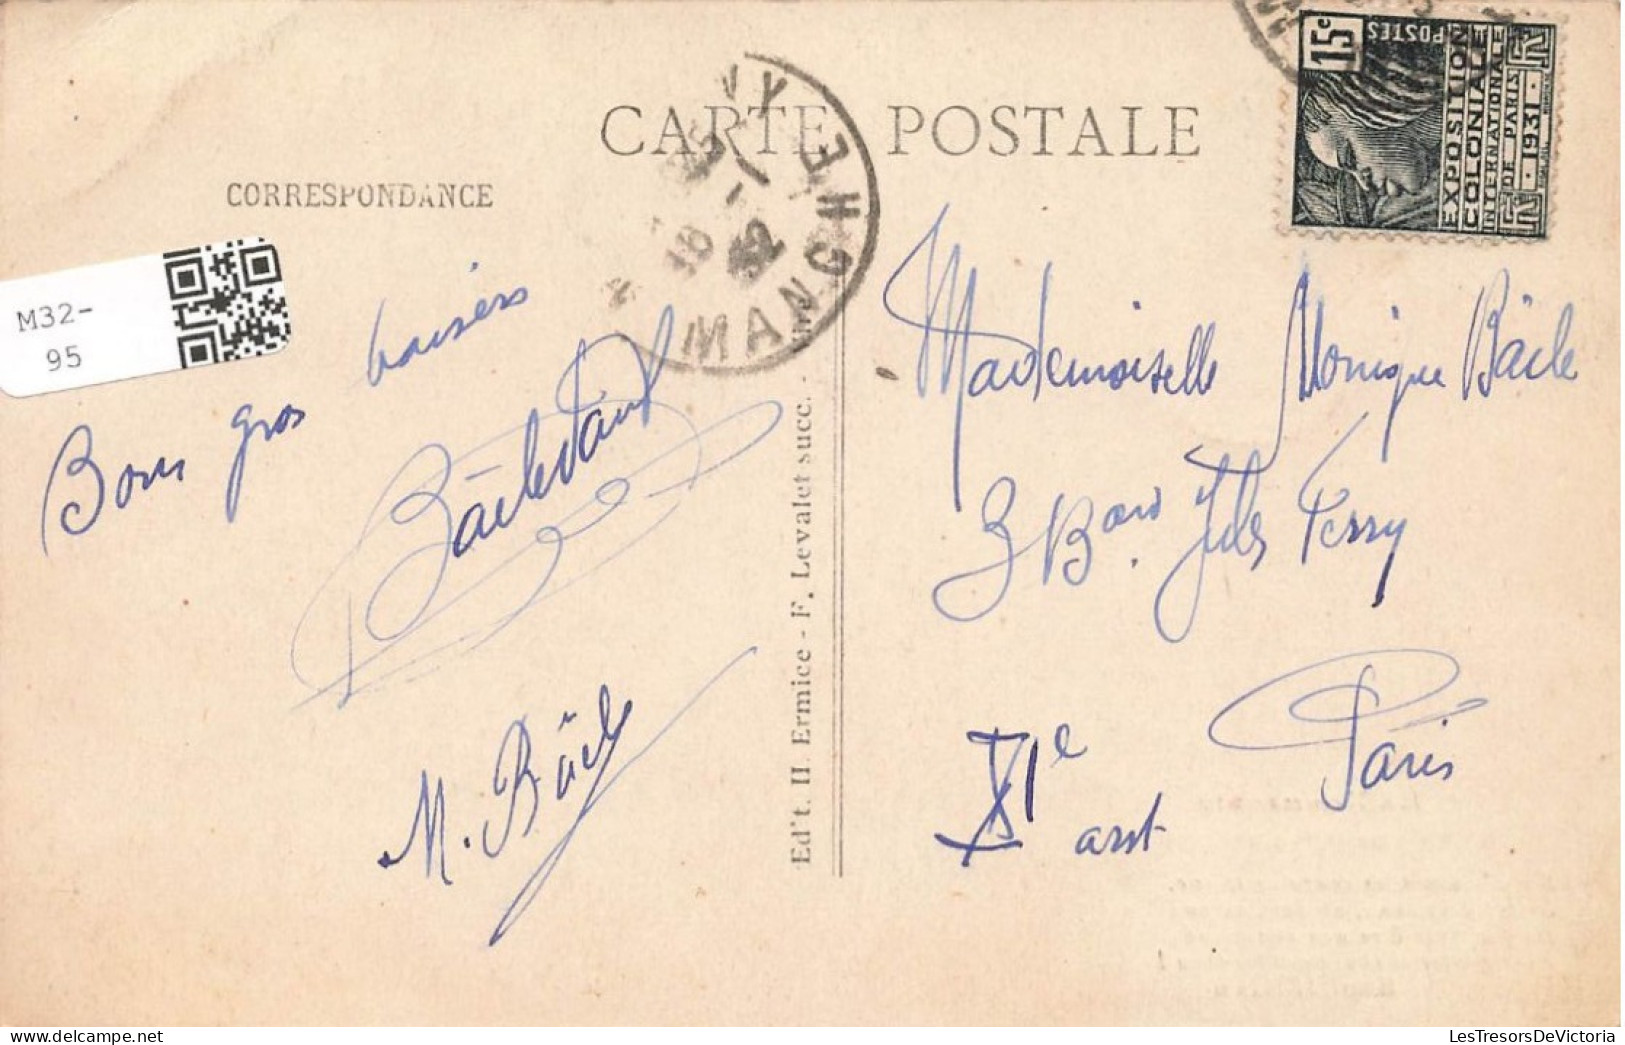 CARTE POSTALE
CORRESPONDANCE
M32-
95
15c
POSTES
EXPOSITION
COLONIALE
INTERNATIONALE
DE PARIS
1931
MANCHE
32
Bons gros baisers
M. Bäcle
Ed't. H. Ermice - F. Levalet succ.
Mademoiselle Monique Bäcle
3 Bard Jules Ferry
Paris
XIe
arrt
LesTresorsDeVictoria